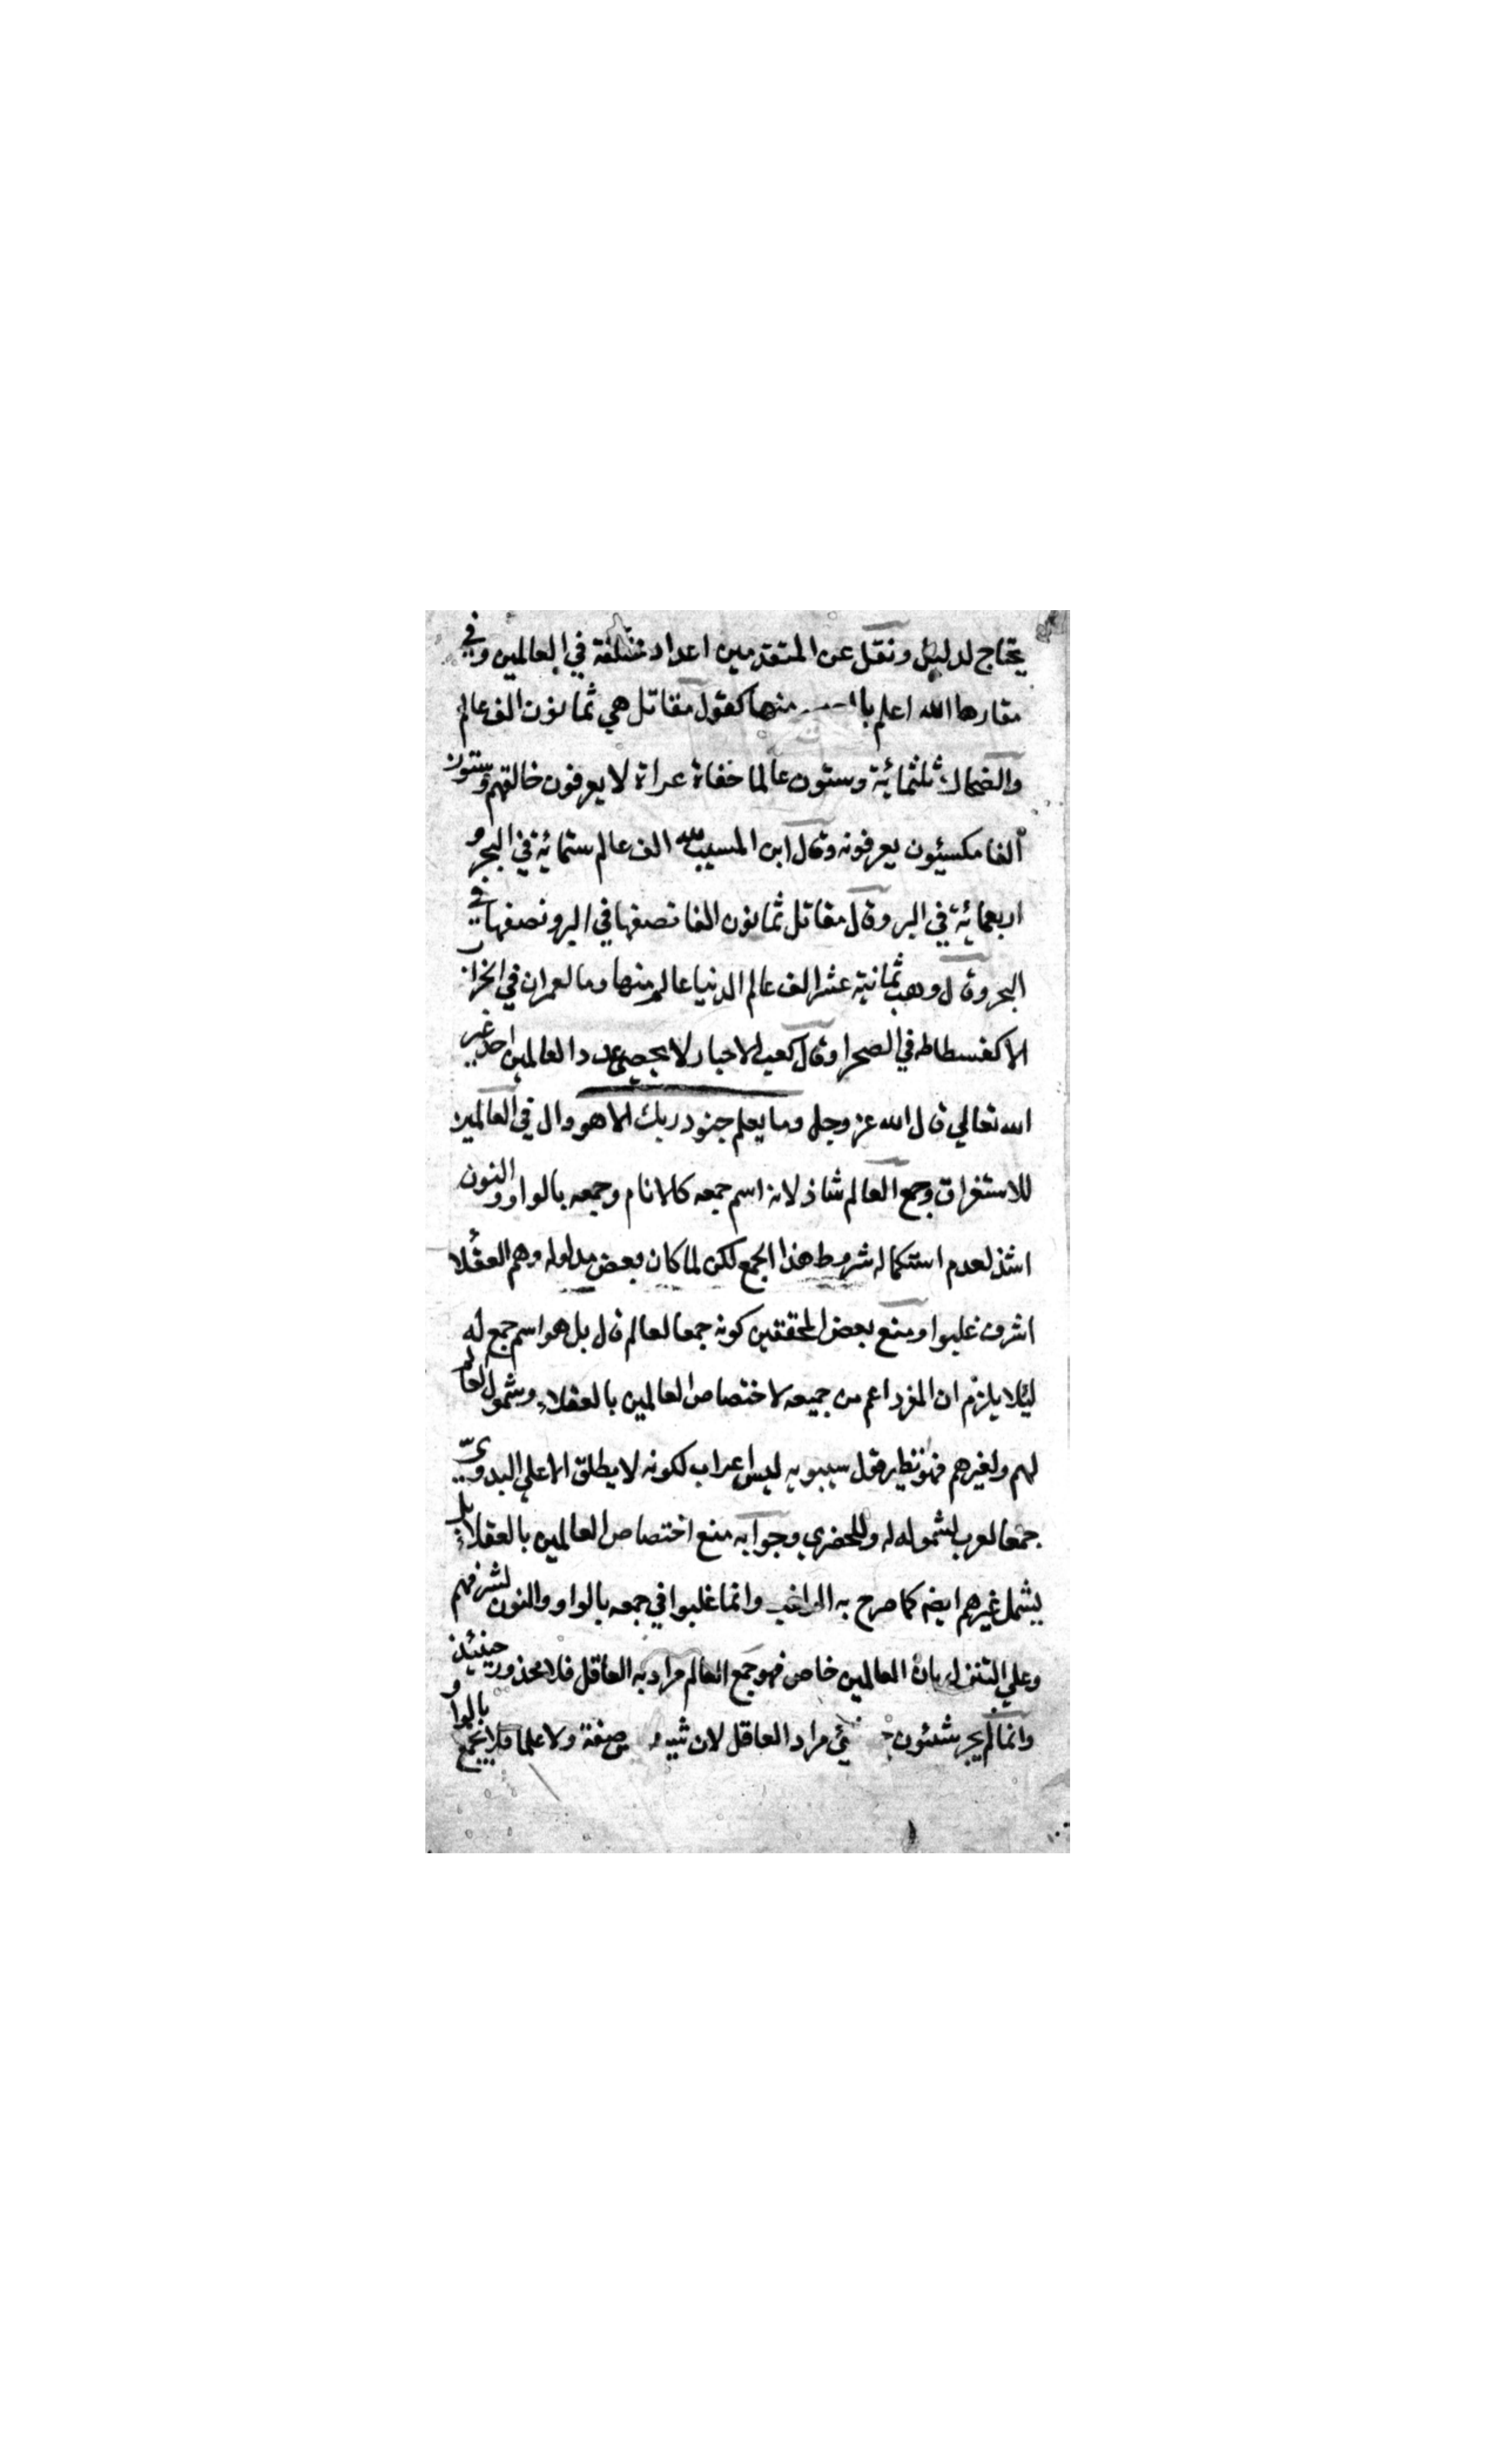 يحتاج لدليل ونقل عن المتقدمين اعداد مختلفة في العالمين وفي
مقارها الله اعلم منها كقول مقاتل هي ثمانون الف عالم
والضحاك ثلثمائة وستون عالما حفاة عراة لا يعرفون خالقهم وستون
ألفا مكسيئون يعرفونه وقال ابن المسيب لله الف عالم ستمائة في البحر و
اربعمائة في البر وقال مقاتل ثمانون الفا نصفها في البر ونصفها في
البحر وقال وهب ثمانية عشر الف عالم الدنيا عالم منها وما العمران في الخراب
الا كفسطاط في الصحرا وقال كعب الاحبار لا يحصي عدد العالمين احد غير
الله تعالي قال الله عز وجل وما يعلم جنود ربك الا هو وال في العالمين
للاستغراق وجمع العالم شاذ لانه اسم جمع كالانام وجمعه بالواو والنون
اشذ لعدم استكماله شروط هذا الجمع لكن لما كان بعض مدلوله وهم العقلا
اشرف غلبوا ومنع بعض المحققين كونه جمعا لعالم قال بل هو اسم جمع له
ليلا يلزم ان المفرد اعم من جمعه لاختصاص العالمين بالعقلاء وشمول العالم
لهم ولغيرهم فهو نظير قول سيبويه ليس اعراب لكونه لا يطلق الا علي البدوي
جمعا لعرب لشموله له وللحضري وجوابه منع اختصاص العالمين بالعقلاء بل
يشمل غيرهم ايضا كما صرح به الراغب وانما غلبوا في جمعه بالواو والنون لشرفهم
وعلي التنزل بان العالمين خاص فهو جمع العالم مراد به العاقل فلا محذور حينئذ
وانما لم يجز شيئون مراد العاقل لان صفة ولا علما فلا يجمع بالواو